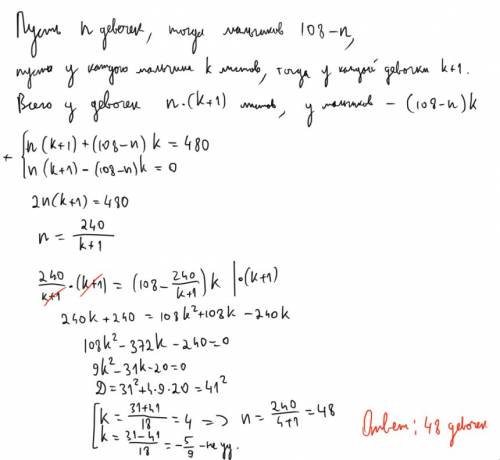 Пусть n девочек, тогда мальчиков 108-n,
пусть у каждого мальчика k листов, тогда у каждой девочки k+1.
Всего у девочек n·(k+1) листов, у мальчиков – (108-n)k
+ { n(k+1)+(108-n)k = 480
n(k+1)-(108-n)k = 0
2n(k+1)=480
n = 240/(k+1)
240/(k+1)·(k+1) = (108-240/(k+1))k |·(k+1)
240k+240 = 108k²+108k-240k
108k²-372k-240=0
9k²-31k-20=0
D=31²+4·9·20=41²
[ k = (31+41)/18 = 4 => n = 240/(4+1) = 48
k = (31-41)/18 = -5/9 - не уд.
Ответ: 48 девочек